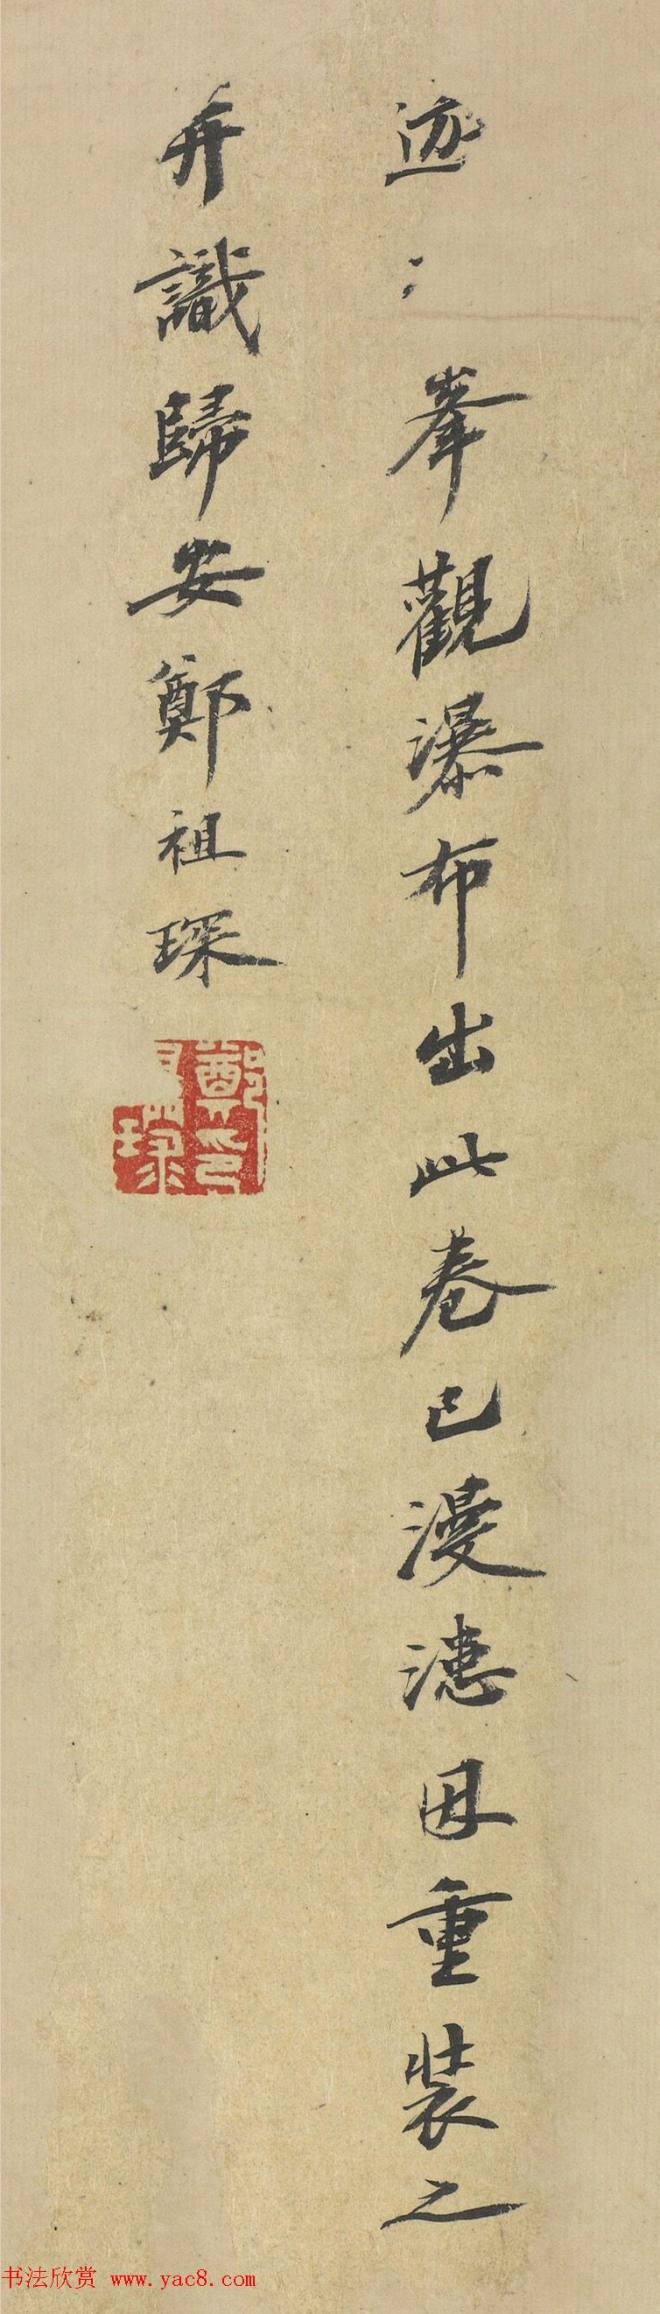 迹〻峯觀瀑布出此卷已漫漶因重裝之
弁識歸安鄭祖琛
鄭印祖琛
书法欣赏 www.yac8.com